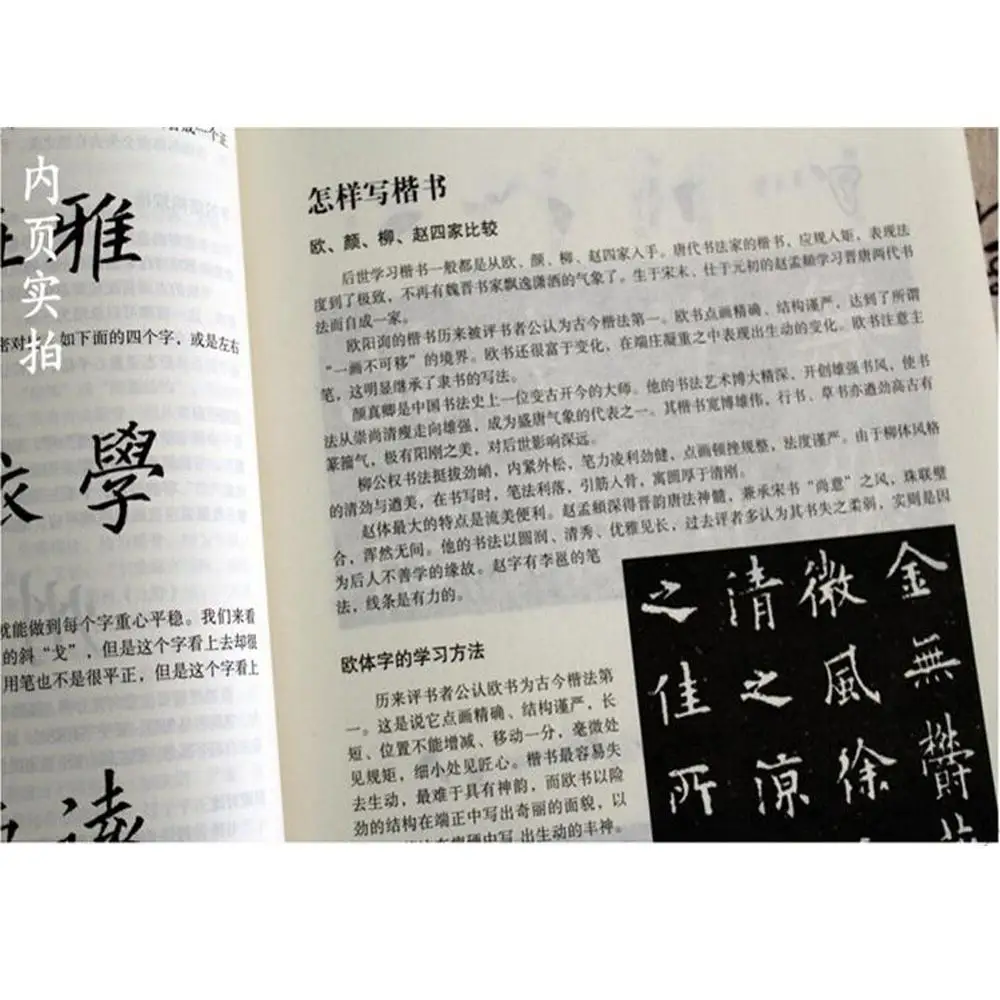 内页实拍
雅
密对 如下面的四个字，或是左右
學
就能做到每个字重心平稳。我们来看
的斜“戈”，但是这个字看上去却很
用笔也不是很平正，但是这个字看上
怎样写楷书
欧、颜、柳、赵四家比较
后世学习楷书一般都是从欧、颜、柳、赵四家入手。唐代书法家的楷书，应规人矩，表现法
度到了极致，不再有魏晋书家飘逸潇洒的气象了。生于宋末、仕于元初的赵孟頫学习晋唐两代书
法而自成一家。
欧阳询的楷书历来被评书者公认为古今楷法第一。欧书点画精确、结构谨严，达到了所谓
“一画不可移”的境界。欧书还很富于变化，在端庄凝重之中表现出生动的变化。欧书注意主
笔，这明显继承了隶书的写法。
颜真卿是中国书法史上一位变古开今的大师。他的书法艺术博大精深，开创雄强书风，使书
法从崇尚清瘦走向雄强，成为盛唐气象的代表之一。其楷书宽博雄伟，行书、草书亦遒劲高古有
篆籀气，极有阳刚之美，对后世影响深远。
柳公权书法挺拔劲峭，内紧外松，笔力凌利劲健，点画顿挫规整，法度谨严。由于柳体风格
的清劲与遒美，在书写时，笔法利落，引筋人骨，寓圆厚于清刚。
赵体最大的特点是流美便利。赵孟頫深得晋韵唐法神髓，兼承宋书“尚意”之风，珠联璧
合，浑然无间。他的书法以圆润、清秀、优雅见长，过去评者多认为其书失之柔弱，实则是因
为后人不善学的缘故。赵字有李邕的笔
法，线条是有力的。
欧体字的学习方法
历来评书者公认欧书为古今楷法第
一。这是说它点画精确、结构谨严，长
短、位置不能增减、移动一分，毫微处
见规矩，细小处见匠心。楷书最容易失
去生动，最难于具有神韵，而欧书以险
劲的结构在端正中写出奇丽的面貌，以
硬中写出生动的丰神。
金無欝
微風徐
清之涼
之佳所